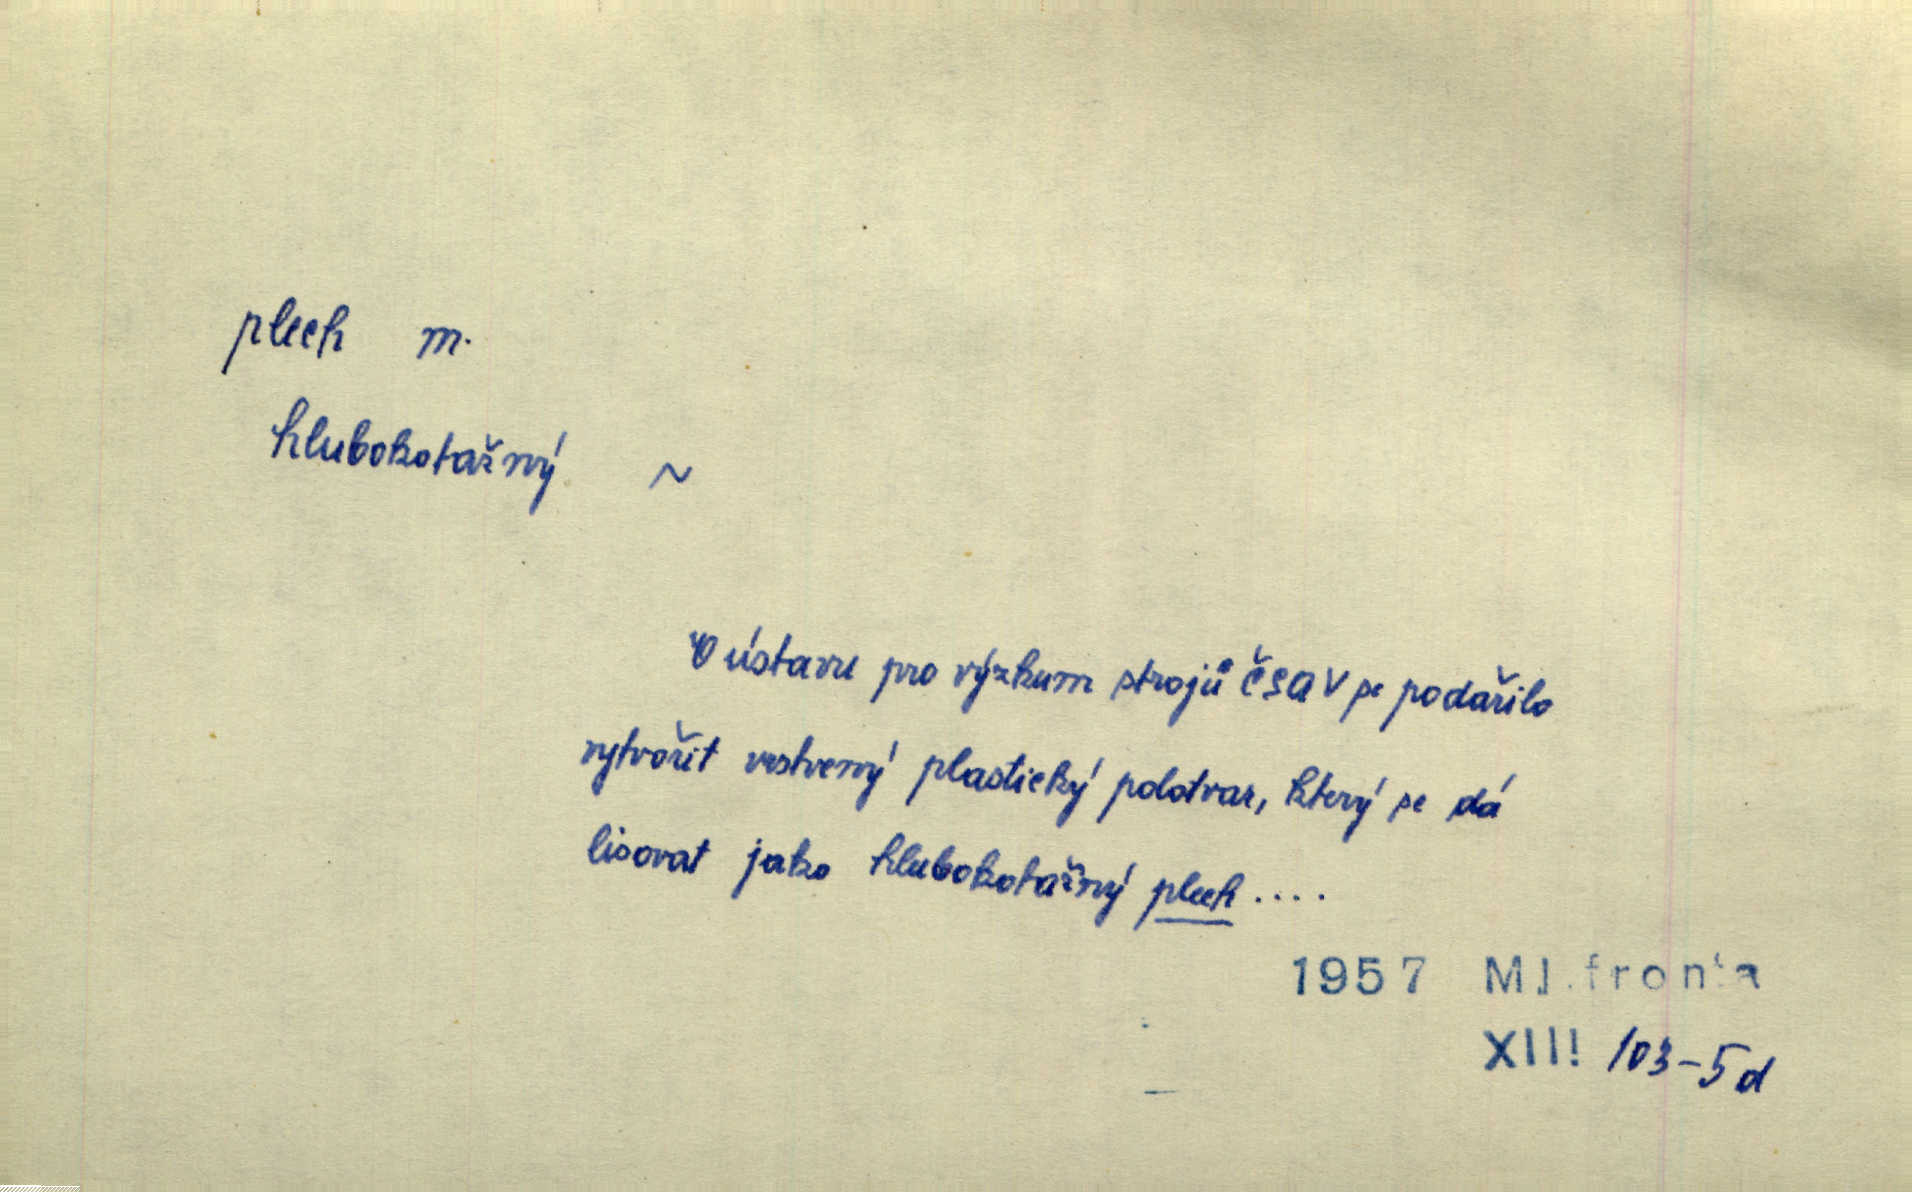 plech m.
hlubokotažný ~
V ústavu pro výzkum strojů ČSAV se podařilo
vytvořit vrstvený plastický polotvar, který se dá
lisovat jako hlubokotažný plech....
1957 Ml.fronta
XIII 103-5d